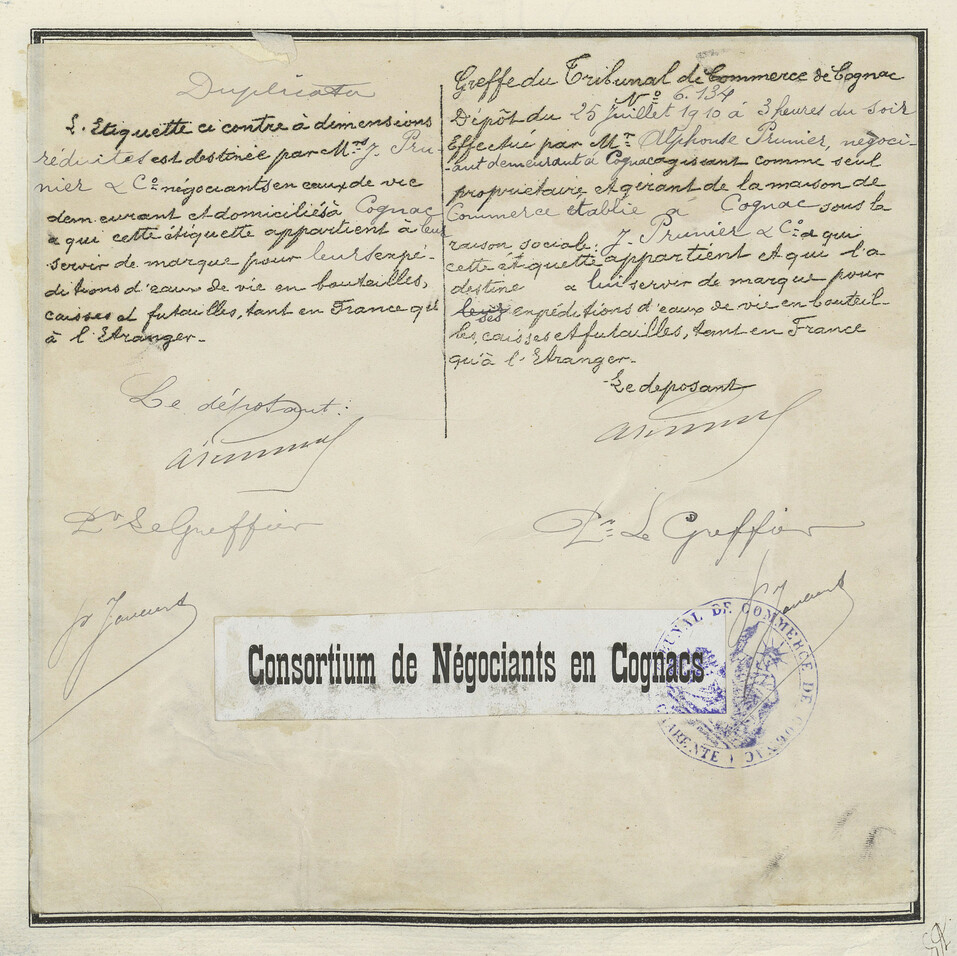 Duplicata
L'Etiquette ci contre à dimensions
réduites est destinée par Mrs J. Pru-
nier & Co négociants en eaux de vie
demeurant et domiciliés à Cognac
a qui cette étiquette appartient à leur
servir de marque pour leurs expé-
ditions d'eaux de vie en bouteilles,
caisses et futailles, tant en France qu'
à l'Etranger.-
Le déposant:
Pr Le Greffier
Greffe du Tribunal de Commerce de Cognac
No 6.134
Dépôt du 25 Juillet 1910 à 3 heures du soir
Effectué par Mr Alphonse Prunier, négoci-
-ant demeurant à Cognac agissant comme seul
propriétaire et gérant de la maison de
Commerce établie à Cognac sous la
raison sociale: J. Prunier & Co a qui
cette étiquette appartient et qui l'a
destine a lui servir de marque pour
leurs ses expéditions d'eaux de vie en bouteil-
les, caisses et futailles, tant en France
qu'à l'Etranger.-
Le deposant
Pr Le Greffier
Consortium de Négociants en Cognacs
TRIBUNAL DE COMMERCE DE COGNAC
CHARENTE